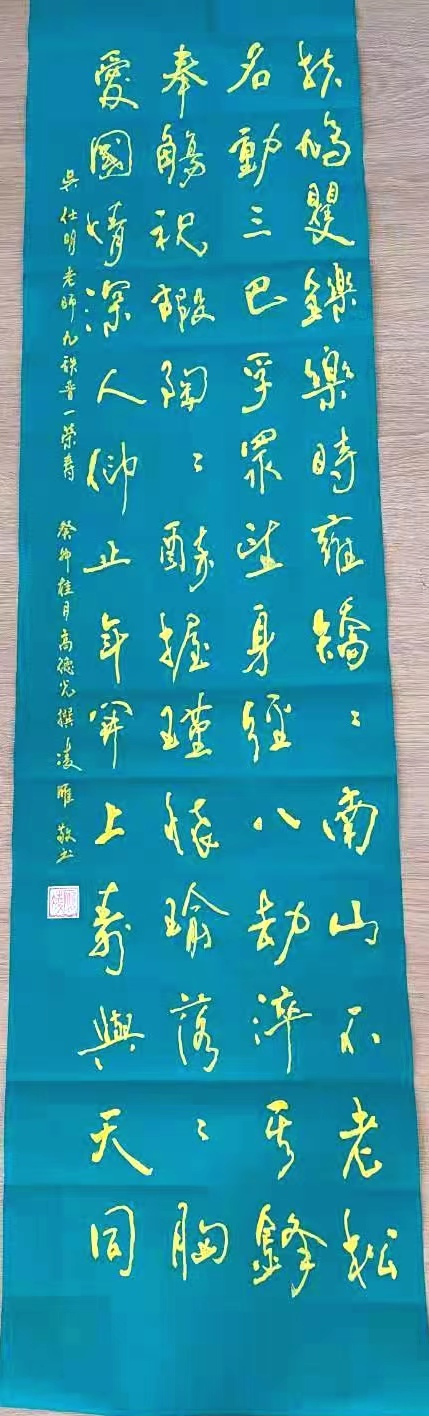 扶鳩矍鑠樂時雍矯〻南山不老松
名動三巴孚眾望身經八劫淬其鋒
奉觴祝嘏陶〻醉握瑾懷瑜落〻胸
愛國情深人仰止年開上壽與天同
吳仕明老師九秩晉一榮壽 癸卯桂月高德光撰凌敬书